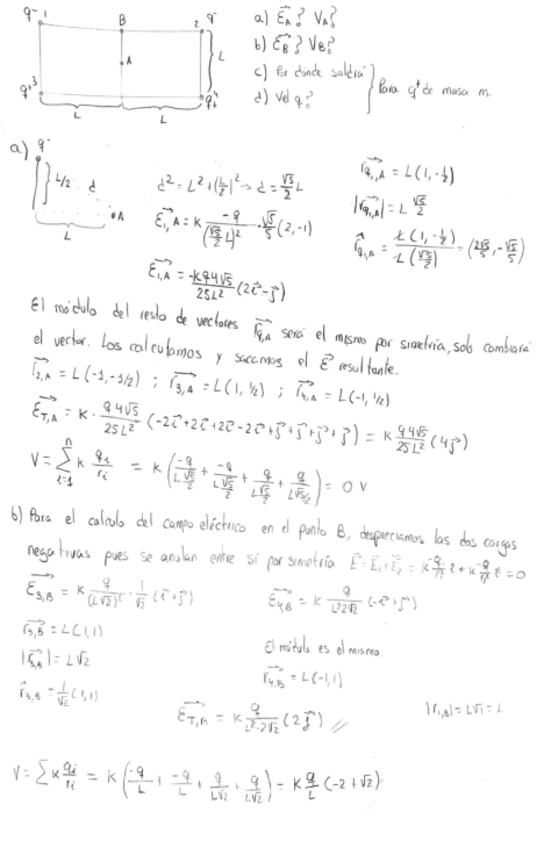 q⁻ 1 B 2 q⁻
A L
q⁺³ q⁺₄
L L
a) E⃗_A? V_A?
b) E⃗_B? V_B?
c) Por dónde saldrá
d) Vel q?
} Para q⁺ de masa m.
a) q⁻
L/2 d
L A
d² = L² + (L/2)² → d = √5/2 L
E⃗₁,A = K -q/(√5/2 L)² · √5/5 (2,-1)
E⃗₁,A = -Kq4√5/25L² (2i⃗-j⃗)
r⃗q₁,A = L(1,-1/2)
|r⃗q₁,A| = L √5/2
r̂q₁A = L(1,-1/2)/L(√5/2) = (2√5/5, -√5/5)
El módulo del resto de vectores r⃗q,A será el mismo por simetría, solo cambiará
el vector. Los calculamos y sacamos el E⃗ resultante.
r⃗₂,A = L(-1,-1/2) ; r⃗₃,A = L(1,1/2) ; r⃗₄,A = L(-1,1/2)
E⃗T,A = K · q4√5/25L² (-2i⃗+2i⃗+2i⃗-2i⃗+j⃗+j⃗+j⃗+j⃗) = K q4√5/25L² (4j⃗)
V = Σⁿᵢ₌₁ K qᵢ/rᵢ = K (-q/L√5/2 + -q/L√5/2 + q/L√5/2 + q/L√5/2) = 0 V
b) Para el calculo del campo eléctrico en el punto B, despreciamos las dos cargas
negativas pues se anulan entre sí por simetría E⃗=E⃗₁+E⃗₂ = K -q/L² i + K -q/L² i = 0
E⃗₃,B = K q/(L√2)² · 1/√2 (i⃗+j⃗)
E⃗₄,B = K q/L²2√2 (-i⃗+j⃗)
r⃗₃,B = L(1,1)
El módulo es el mismo
|r⃗₃,B| = L√2
r⃗₄,B = L(-1,1)
r̂₃,B = 1/√2 (1,1)
E⃗T,B = K q/L²·2√2 (2j⃗)
|r₁,B| = L√1 = L
V = Σ K qᵢ/rᵢ = K (-q/L + -q/L + q/L√2 + q/L√2) = K q/L (-2+√2)